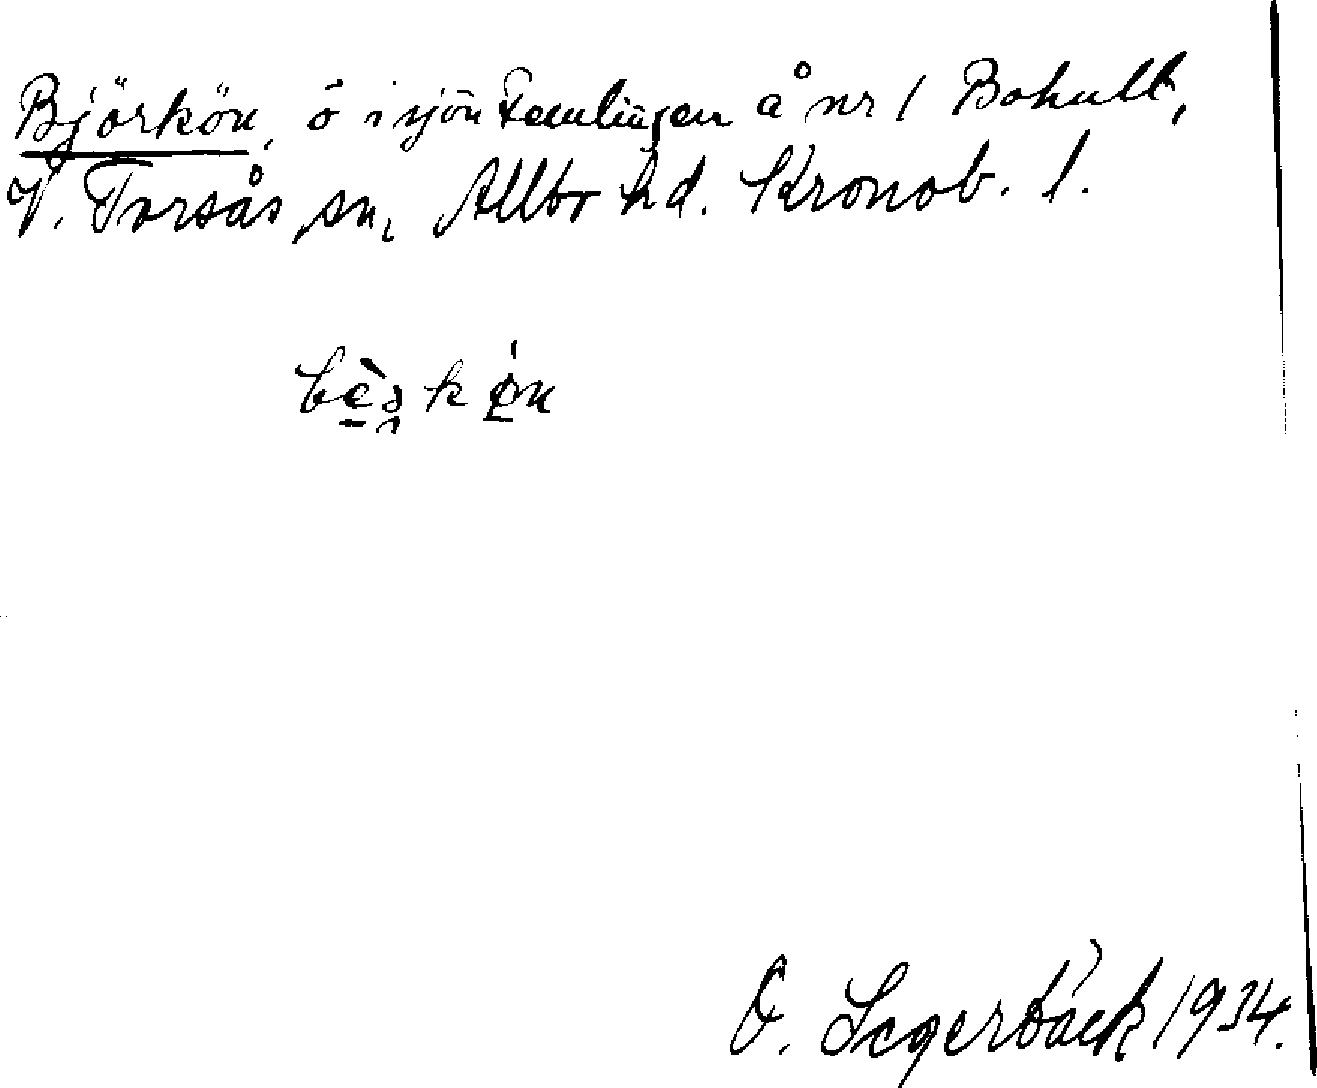 Björkön, ö i sjön Femlingen å nr 1 Bohult,
V. Torsås sn, Allbo hd. Kronob. l.
O. Segerbäck 1934.